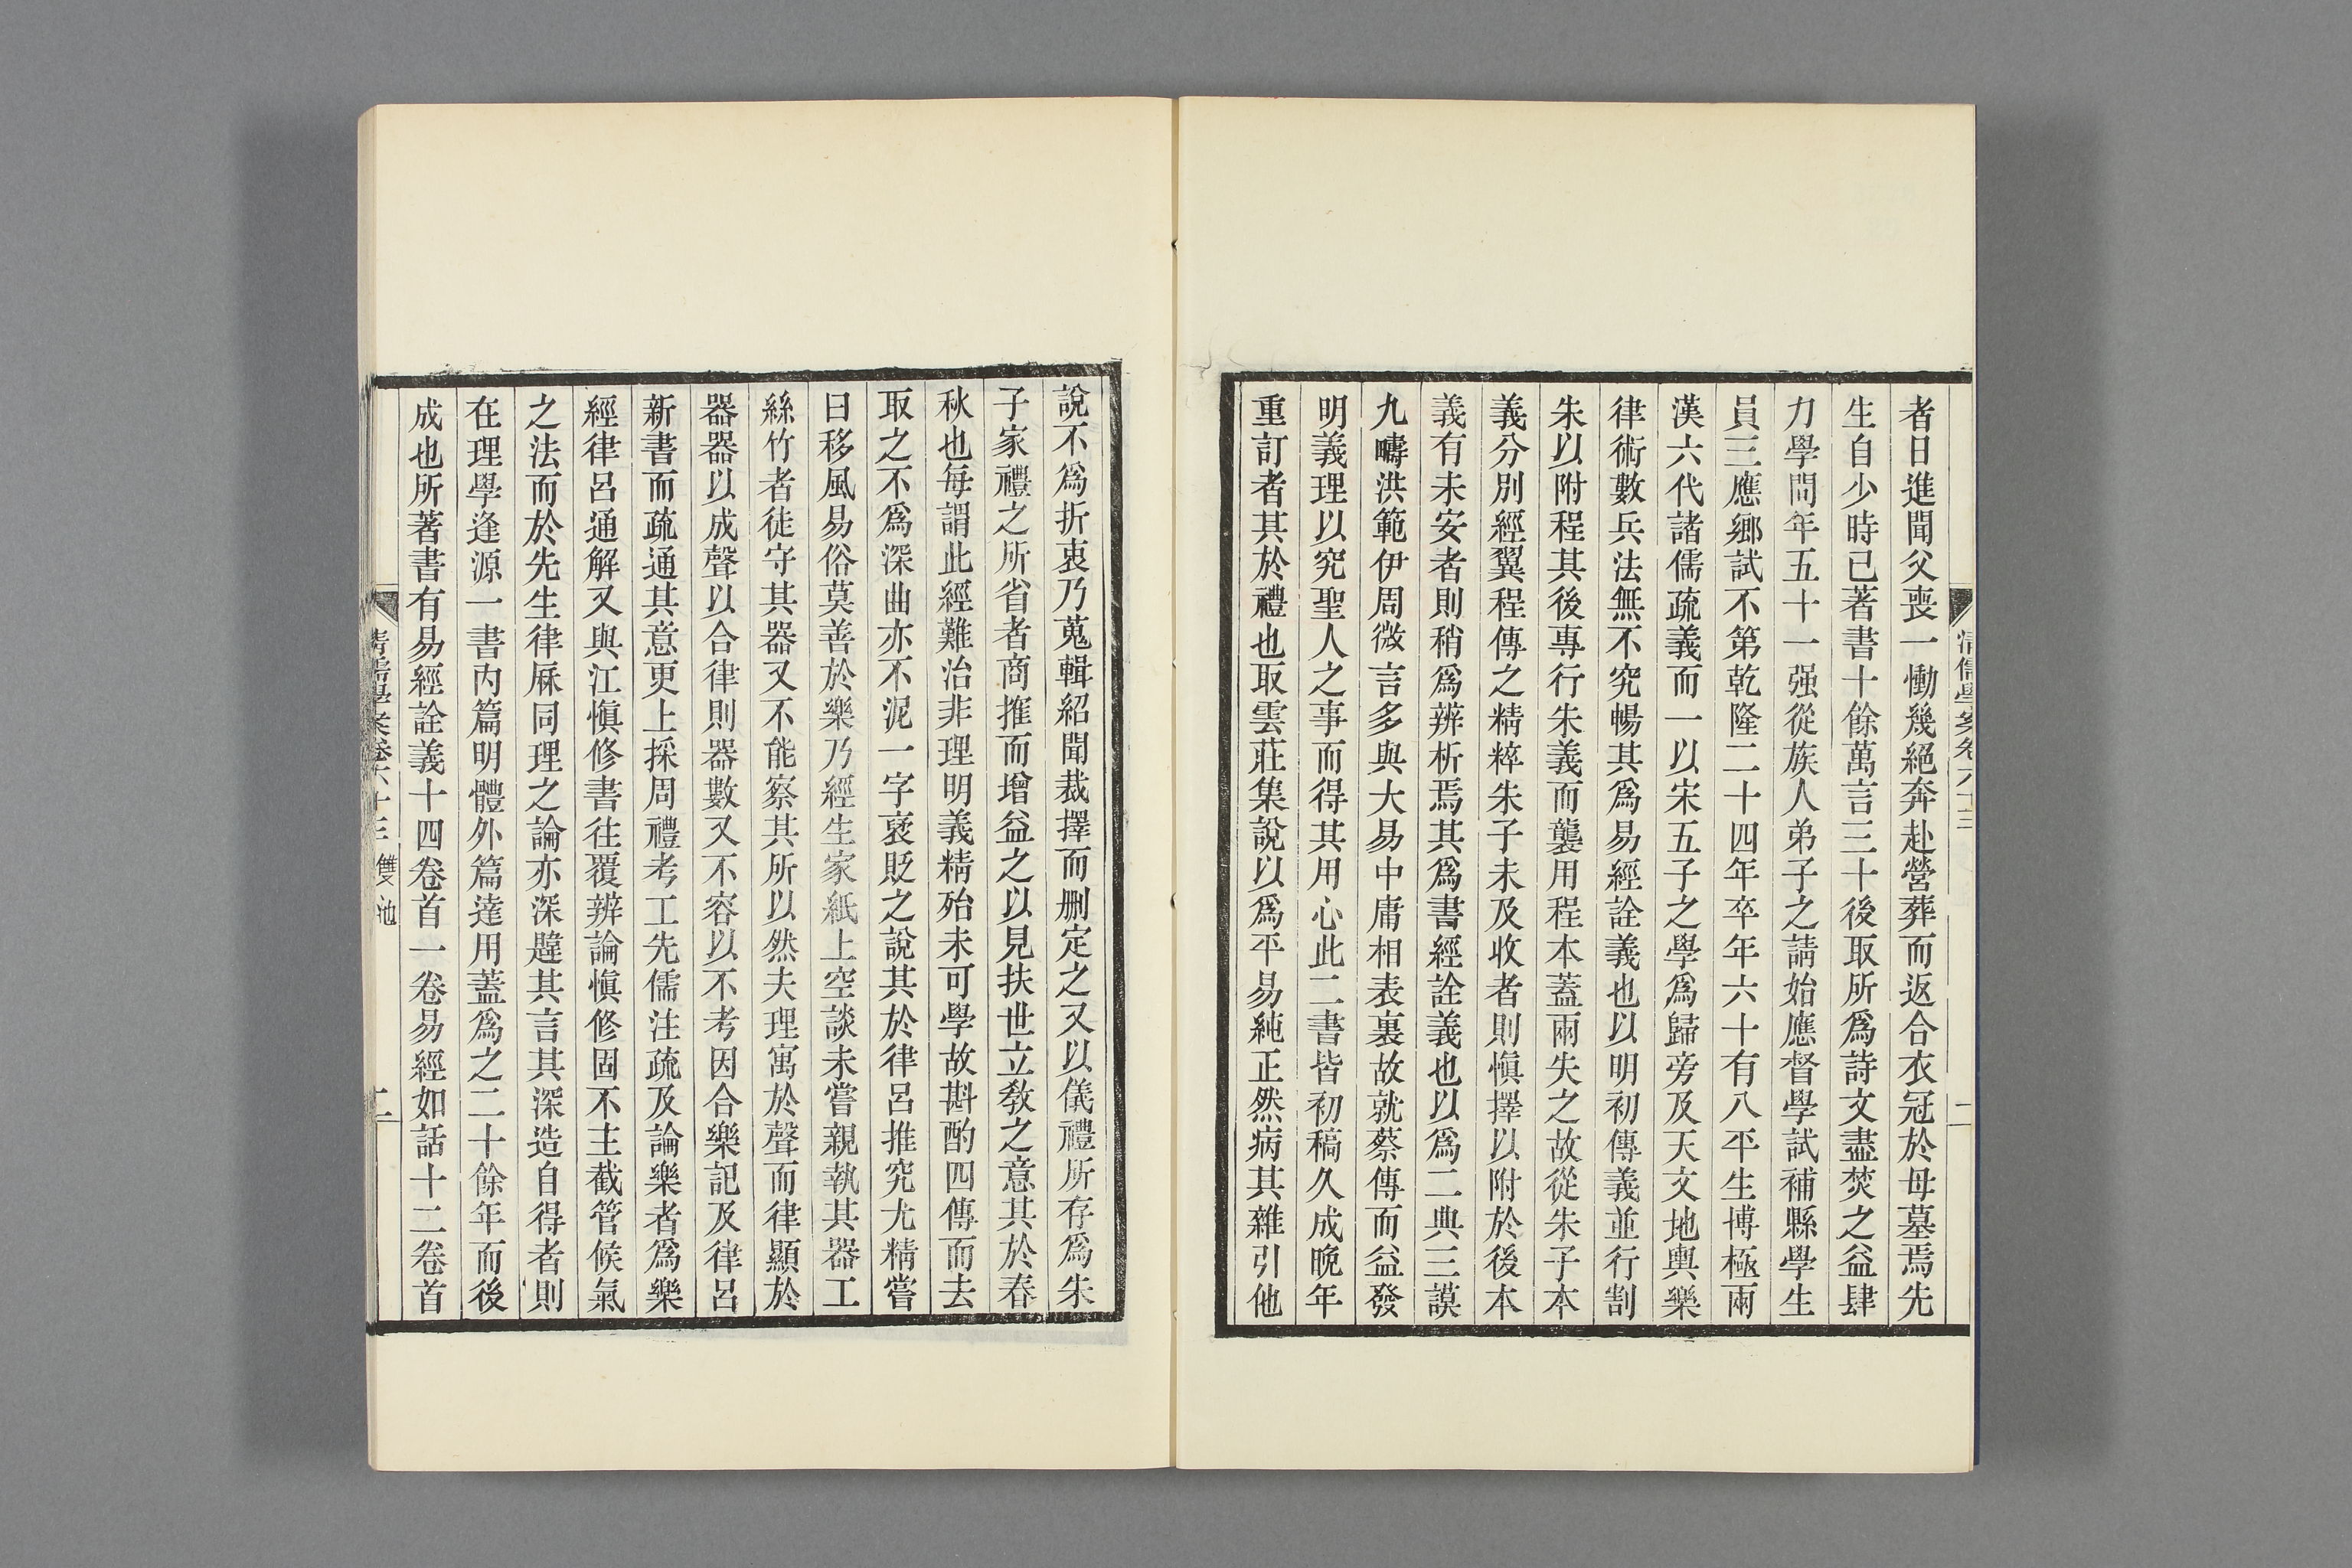 清儒學案卷六十三
一
者日進聞父喪一慟幾絕奔赴營葬而返合衣冠於母墓焉先
生自少時已著書十餘萬言三十後取所爲詩文盡焚之益肆
力學問年五十一强從族人弟子之請始應督學試補縣學生
員三應鄉試不第乾隆二十四年卒年六十有八平生博極兩
漢六代諸儒疏義而一以宋五子之學爲歸旁及天文地輿樂
律術數兵法無不究暢其爲易經詮義也以明初傳義並行割
朱以附程其後專行朱義而襲用程本蓋兩失之故從朱子本
義分別經翼程傳之精粹朱子未及收者則愼擇以附於後本
義有未安者則稍爲辨析焉其爲書經詮義也以爲二典三謨
九疇洪範伊周微言多與大易中庸相表裏故就蔡傳而益發
明義理以究聖人之事而得其用心此二書皆初稿久成晚年
重訂者其於禮也取雲莊集說以爲平易純正然病其雜引他
說不爲折衷乃蒐輯紹聞裁擇而刪定之又以儀禮所存爲朱
子家禮之所省者商搉而增益之以見扶世立敎之意其於春
秋也每謂此經難治非理明義精殆未可學故斟酌四傳而去
取之不爲深曲亦不泥一字褒貶之說其於律呂推究尤精嘗
曰移風易俗莫善於樂乃經生家紙上空談未嘗親執其器工
絲竹者徒守其器又不能察其所以然夫理寓於聲而律顯於
器器以成聲以合律則器數又不容以不考因合樂記及律呂
新書而疏通其意更上採周禮考工先儒注疏及論樂者爲樂
經律呂通解又與江愼修書往覆辨論愼修固不主截管候氣
之法而於先生律厤同理之論亦深韙其言其深造自得者則
在理學逢源一書內篇明體外篇達用蓋爲之二十餘年而後
成也所著書有易經詮義十四卷首一卷易經如話十二卷首
清儒學案卷六十三 雙池
二